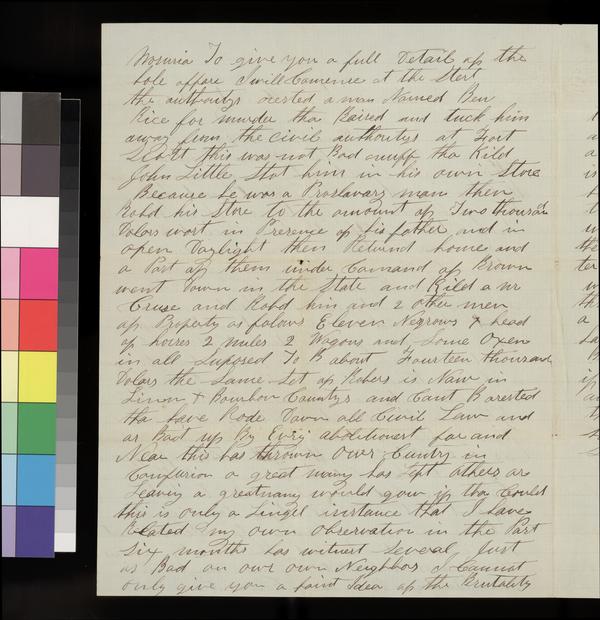 To give you a full Detail of the
hole affare I will Comence at the Stert
the authoritys arested a man Named Ben
Rice for murder tha Raised and tuck him
away from the civil authoritys at Fort
Scott this was not Bad enuff tha Kild
John Little Shot him in his own Store
Because he was a Proslavary man then
Robd his Store to the amount of Two thousan
Dolars wort in Presence of his father and in
open Daylight then Returnd home and
a Part of them under Comand of Brown
went Down in the State and Kild a mr
Cruse and Robd him and 2 other men
of Property as folows Eleven Negrows & head
of horses 2 mules 2 Wagons and Some Oxen
in all Suposed To B about Fourteen thousand
Dolars the Same Set of Robers is Now in
Linn & Bourbon Countys and Cant B arested
tha have Rode Down all Civil Law and
ar Bact up By Evry abolitionest far and
Near this has thrown Over Cuntry in
Confusion a great many has left others are
Leaving a greatmany would gow if tha Could
this is only a Singel instance that I have
Related my own observation in the Past
Six months has witnest Several Just
as Bad on our own Neighbors I Cannot
only give you a faint Idea of the Brutality